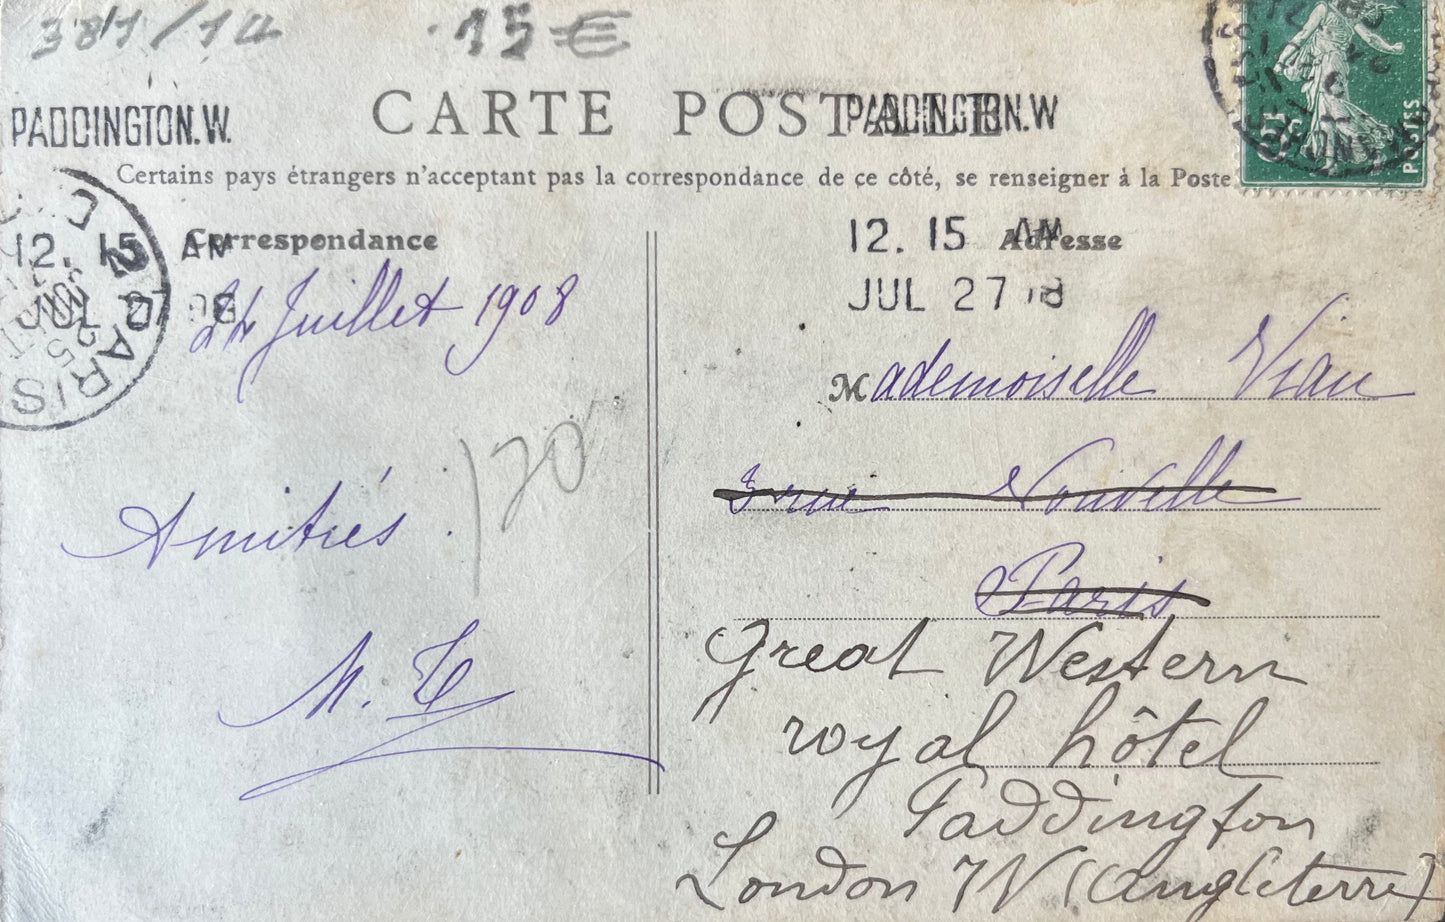 381/14
15 €
CARTE POSTALE
PADDINGTON.W.
PADDINGTON.W
Certains pays étrangers n'acceptent pas la correspondance de ce côté, se renseigner à la Poste
POSTES
Correspondance
12. 15 AM
JUL 27 08
PARIS
25
24 Juillet 1908
120
Amitiés.
Adresse
12. 15 AM
JUL 27 08
Mademoiselle Vian
3 rue Nouvelle
Paris
Great Western
royal hôtel
Paddington
London W (Angleterre)